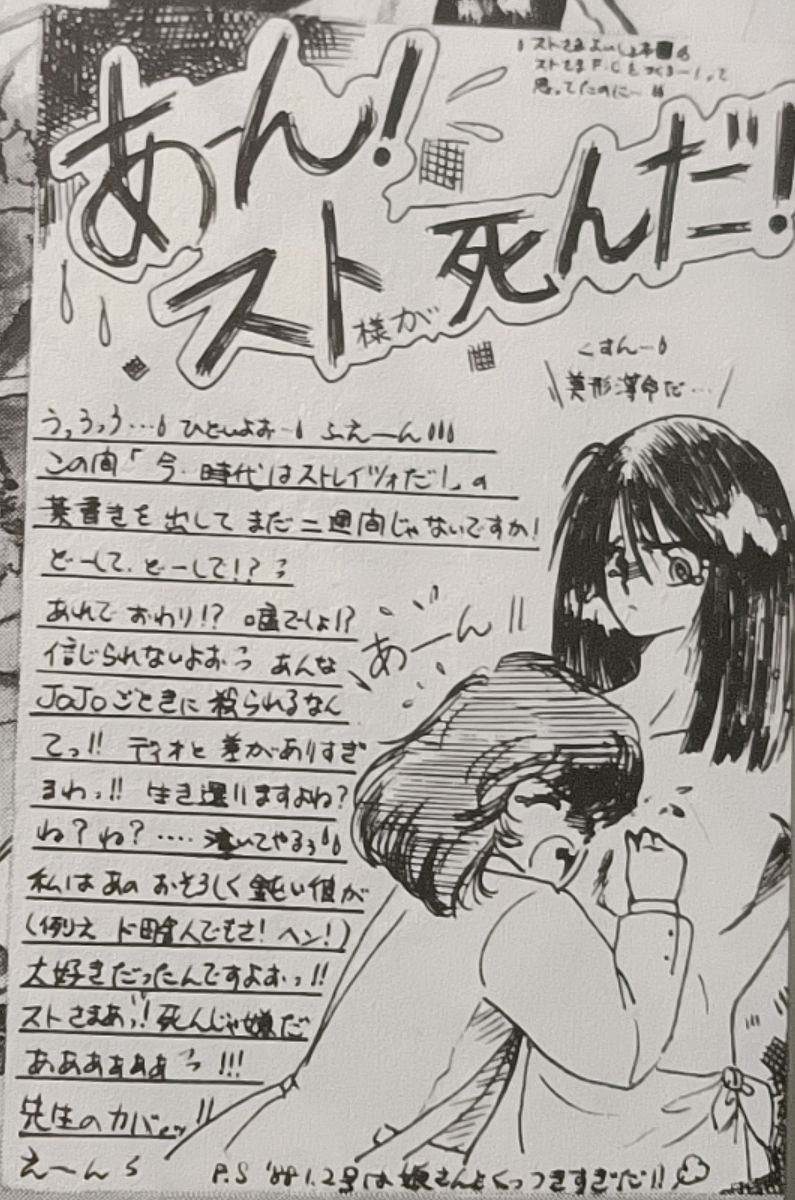 ストさまよいしょ本
ストさまF.Cをつくろーって
思ってたのにー
あん!
スト様が死んだ!
くすんー
美形薄命だ…
うっうっう… ひどいよおー ふえーん
この間「今、時代はストレイツォだ!」の
葉書きを出してまだ二週間じゃないですか!
どーして、どーして!?
あれでおわり!? 嘘でしょ!?
あーん!!
信じられないよおっ あんな
JOJOごときに殺られるなん
てっ!! ディオと差がありすぎ
るわっ!! 生き還りますよね?
ね?ね?‥‥泣いてやるぅ
私はあのおそろしく鈍い彼が
(例えド畜人でもさ!ヘン!)
大好きだったんですよおっ!!
ストさまあっ!死んじゃ嫌だ
ああああああっ!!!
先生のカバーッ!!
えーん
P.S '88 1.2号は娘さんとくっつきすぎだ!!